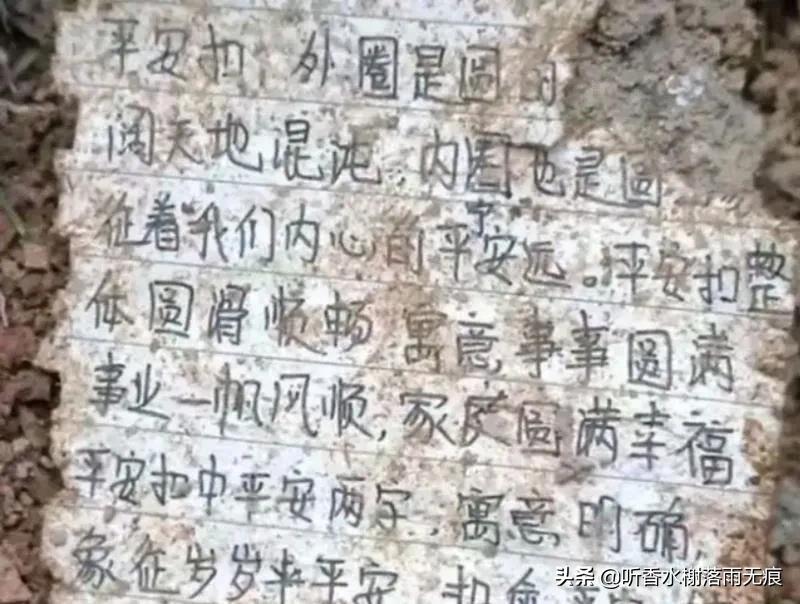 平安扣 外圈是圆的
阔天地混沌,内圈也是圆
征着我们内心的平安远。平安扣整
宁
体圆滑顺畅 寓意,事事圆满
事业一帆风顺,家庭圆满幸福
平安扣中平安两字,寓意明确,
象征岁岁平安 扣
头条 @听香水榭落雨无痕